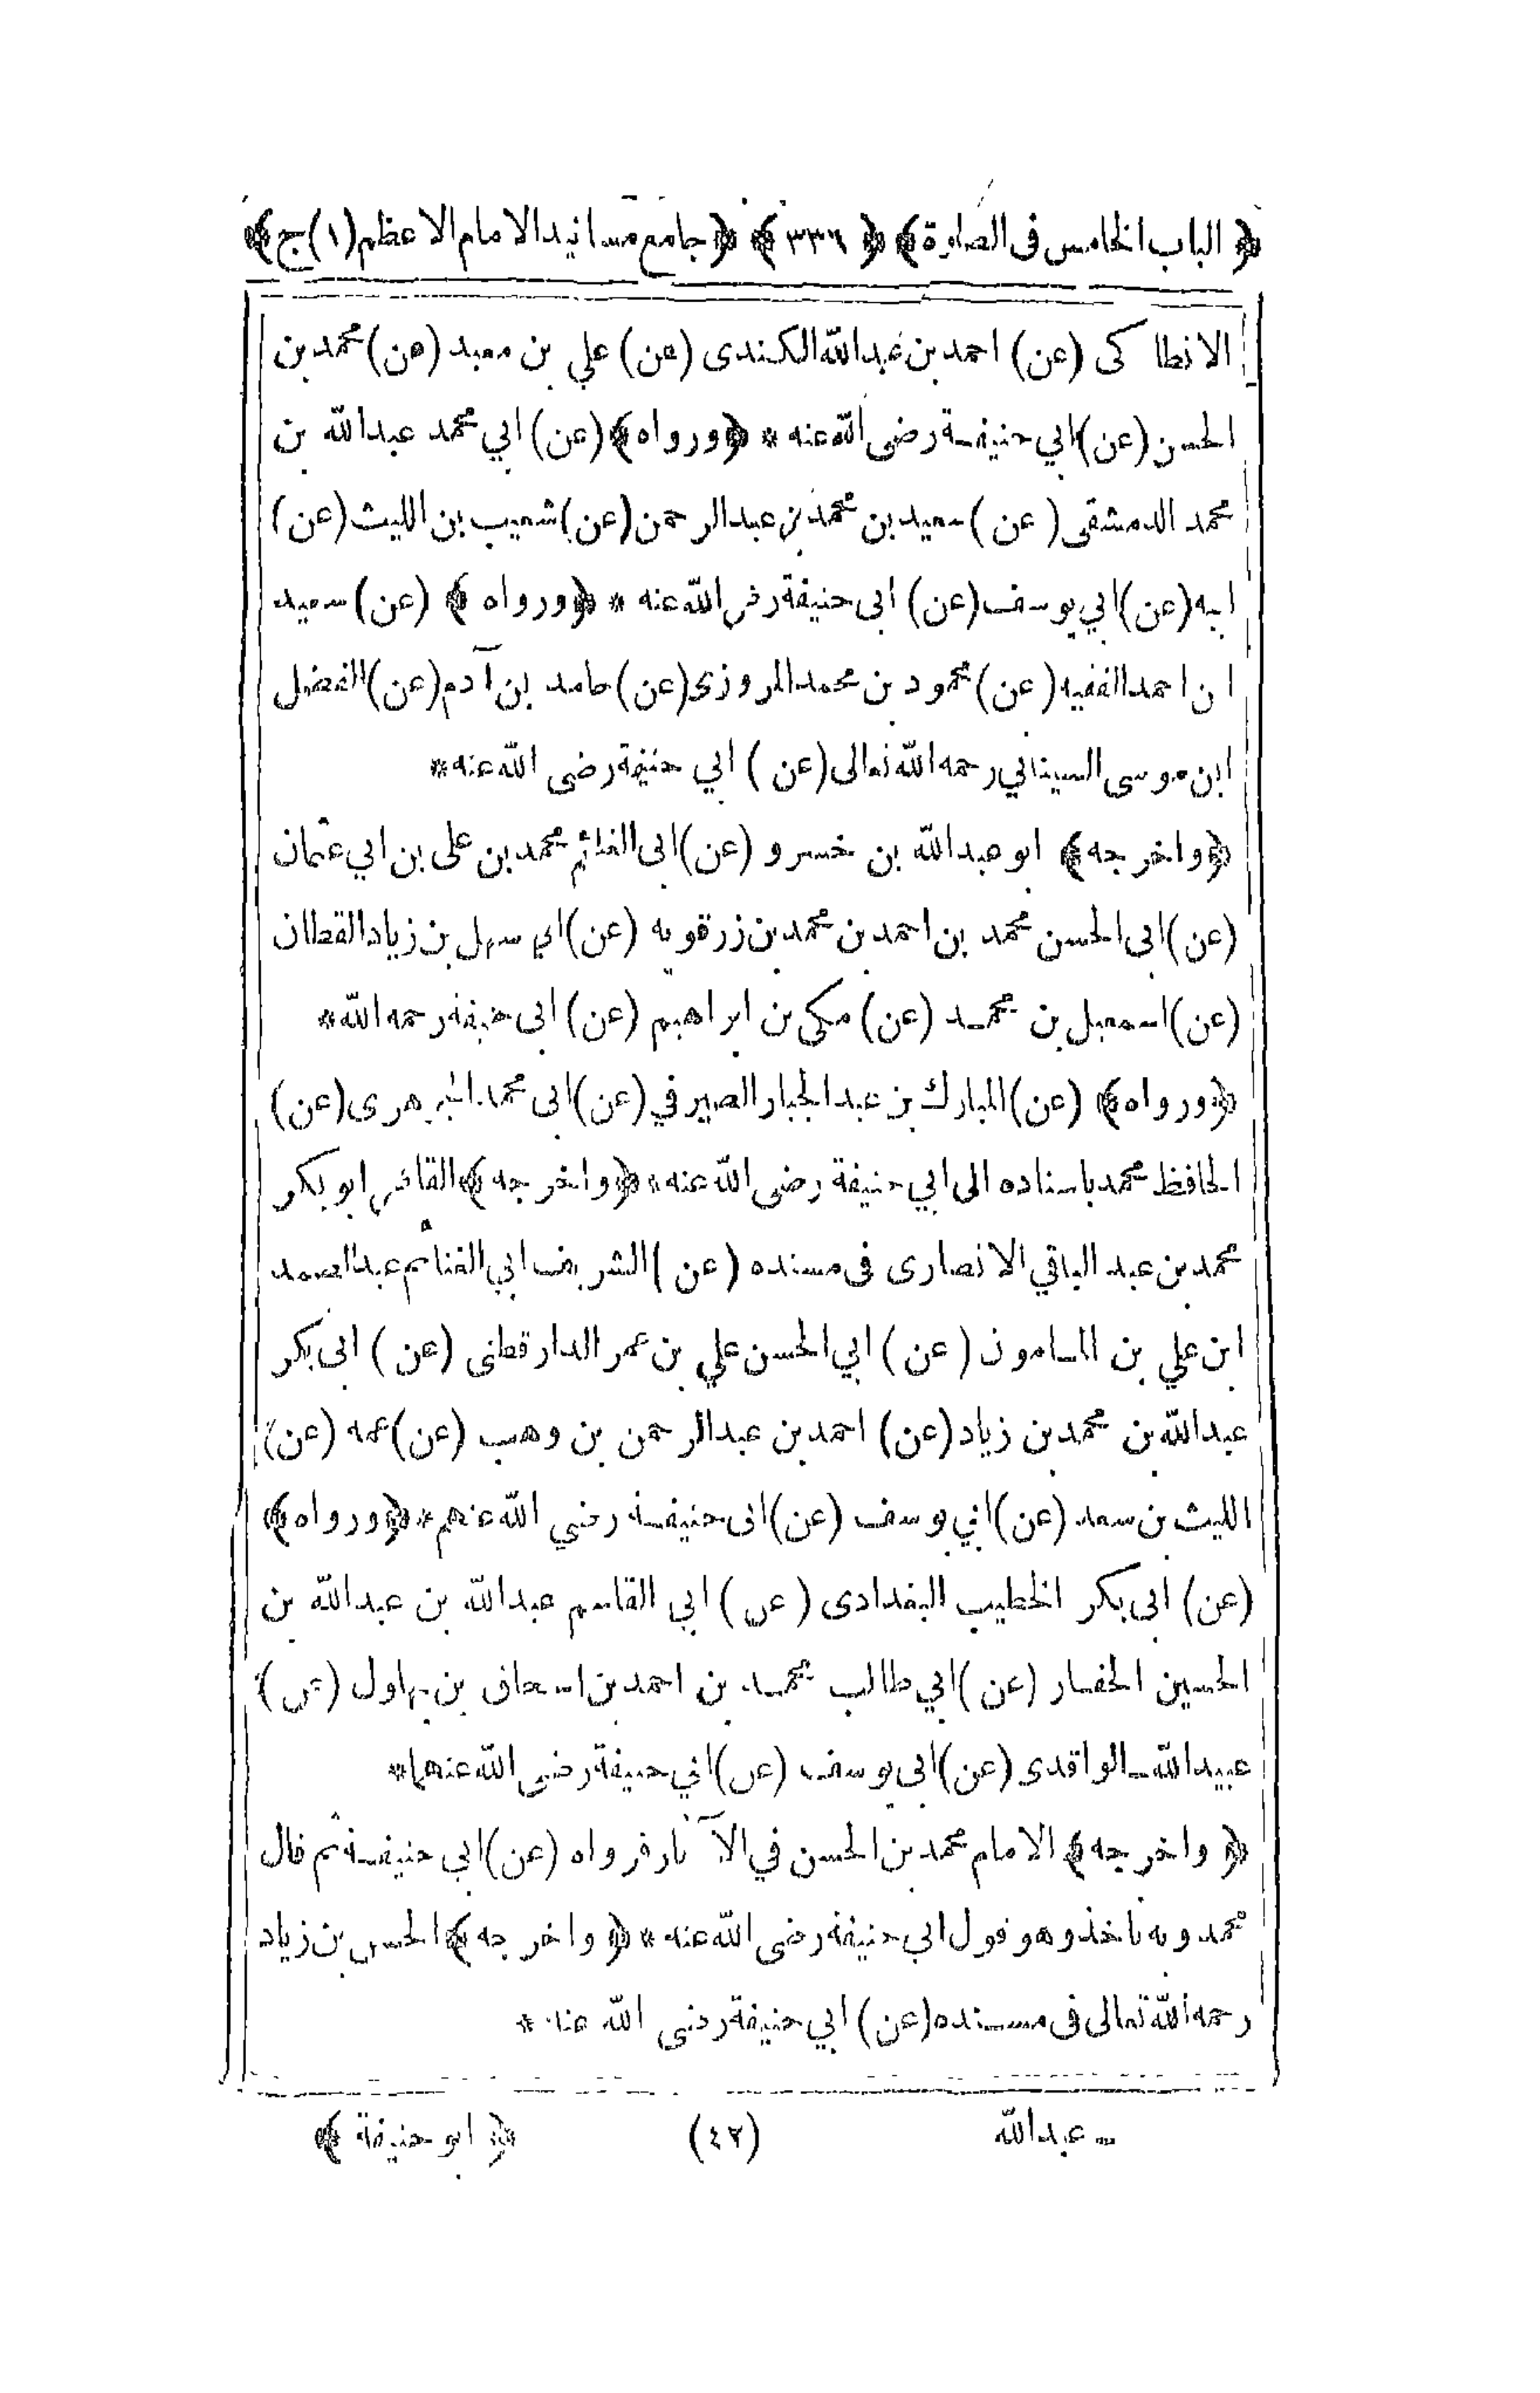 ﴿ الباب الخامس فى الصلوة ﴾ ﴿ ٣٣٦ ﴾ ﴿ جامع مسانيد الامام الاعظم (١) ج ﴾
الانطاكى (عن) احمد بن عبدالله الكندى (عن) علي بن معبد (عن) محمد بن
الحسن (عن) ابي حنيفة رضى الله عنه * ﴿ ورواه ﴾ (عن) ابي محمد عبدالله بن
محمد الدمشقى (عن) سعيد بن محمد بن عبدالرحمن (عن) شعيب بن الليث (عن)
ابيه (عن) ابي يوسف (عن) ابى حنيفة رضى الله عنه * ﴿ ورواه ﴾ (عن) سعيد
ابن احمد الفقيه (عن) محمود بن محمد المروزى (عن) حامد بن آدم (عن) الفضل
ابن موسى السينانى رحمه الله تعالى (عن) ابي حنيفة رضى الله عنه *
﴿ واخرجه ﴾ ابو عبدالله بن خسرو (عن) ابى الغنائم محمد بن على بن ابي عثمان
(عن) ابى الحسن محمد بن احمد بن محمد بن زرقويه (عن) ابي سهل بن زياد القطان
(عن) اسمعيل بن محمد (عن) مكى بن ابراهيم (عن) ابى حنيفة رحمه الله *
﴿ ورواه ﴾ (عن) المبارك بن عبدالجبار الصيرفي (عن) ابى محمد الجوهرى (عن)
الحافظ محمد باسناده الى ابي حنيفة رضى الله عنه * ﴿ واخرجه ﴾ القاضى ابو بكر
محمد بن عبد الباقي الانصارى فى مسنده (عن) الشريف ابي الغنائم عبدالصمد
ابن علي بن المامون (عن) ابي الحسن علي بن عمر الدارقطنى (عن) ابى بكر
عبدالله بن محمد بن زياد (عن) احمد بن عبدالرحمن بن وهب (عن) عمه (عن)
الليث بن سعد (عن) ابي يوسف (عن) ابى حنيفة رضي الله عنهم * ﴿ ورواه ﴾
(عن) ابى بكر الخطيب البغدادى (عن) ابي القاسم عبدالله بن عبدالله بن
الحسين الحفار (عن) ابي طالب محمد بن احمد بن اسحاق بن بهلول (عن)
عبيدالله ـ الواقدى (عن) ابى يوسف (عن) ابي حنيفة رضى الله عنهما *
﴿ واخرجه ﴾ الامام محمد بن الحسن في الآثار فرواه (عن) ابي حنيفة ثم قال
محمد وبه ناخذ وهو قول ابي حنيفة رضى الله عنه * ﴿ واخرجه ﴾ الحسن بن زياد
رحمه الله تعالى فى مسنده (عن) ابي حنيفة رضى الله عنه *
ـ عبدالله (٤٢) ﴿ ابو حنيفة ﴾